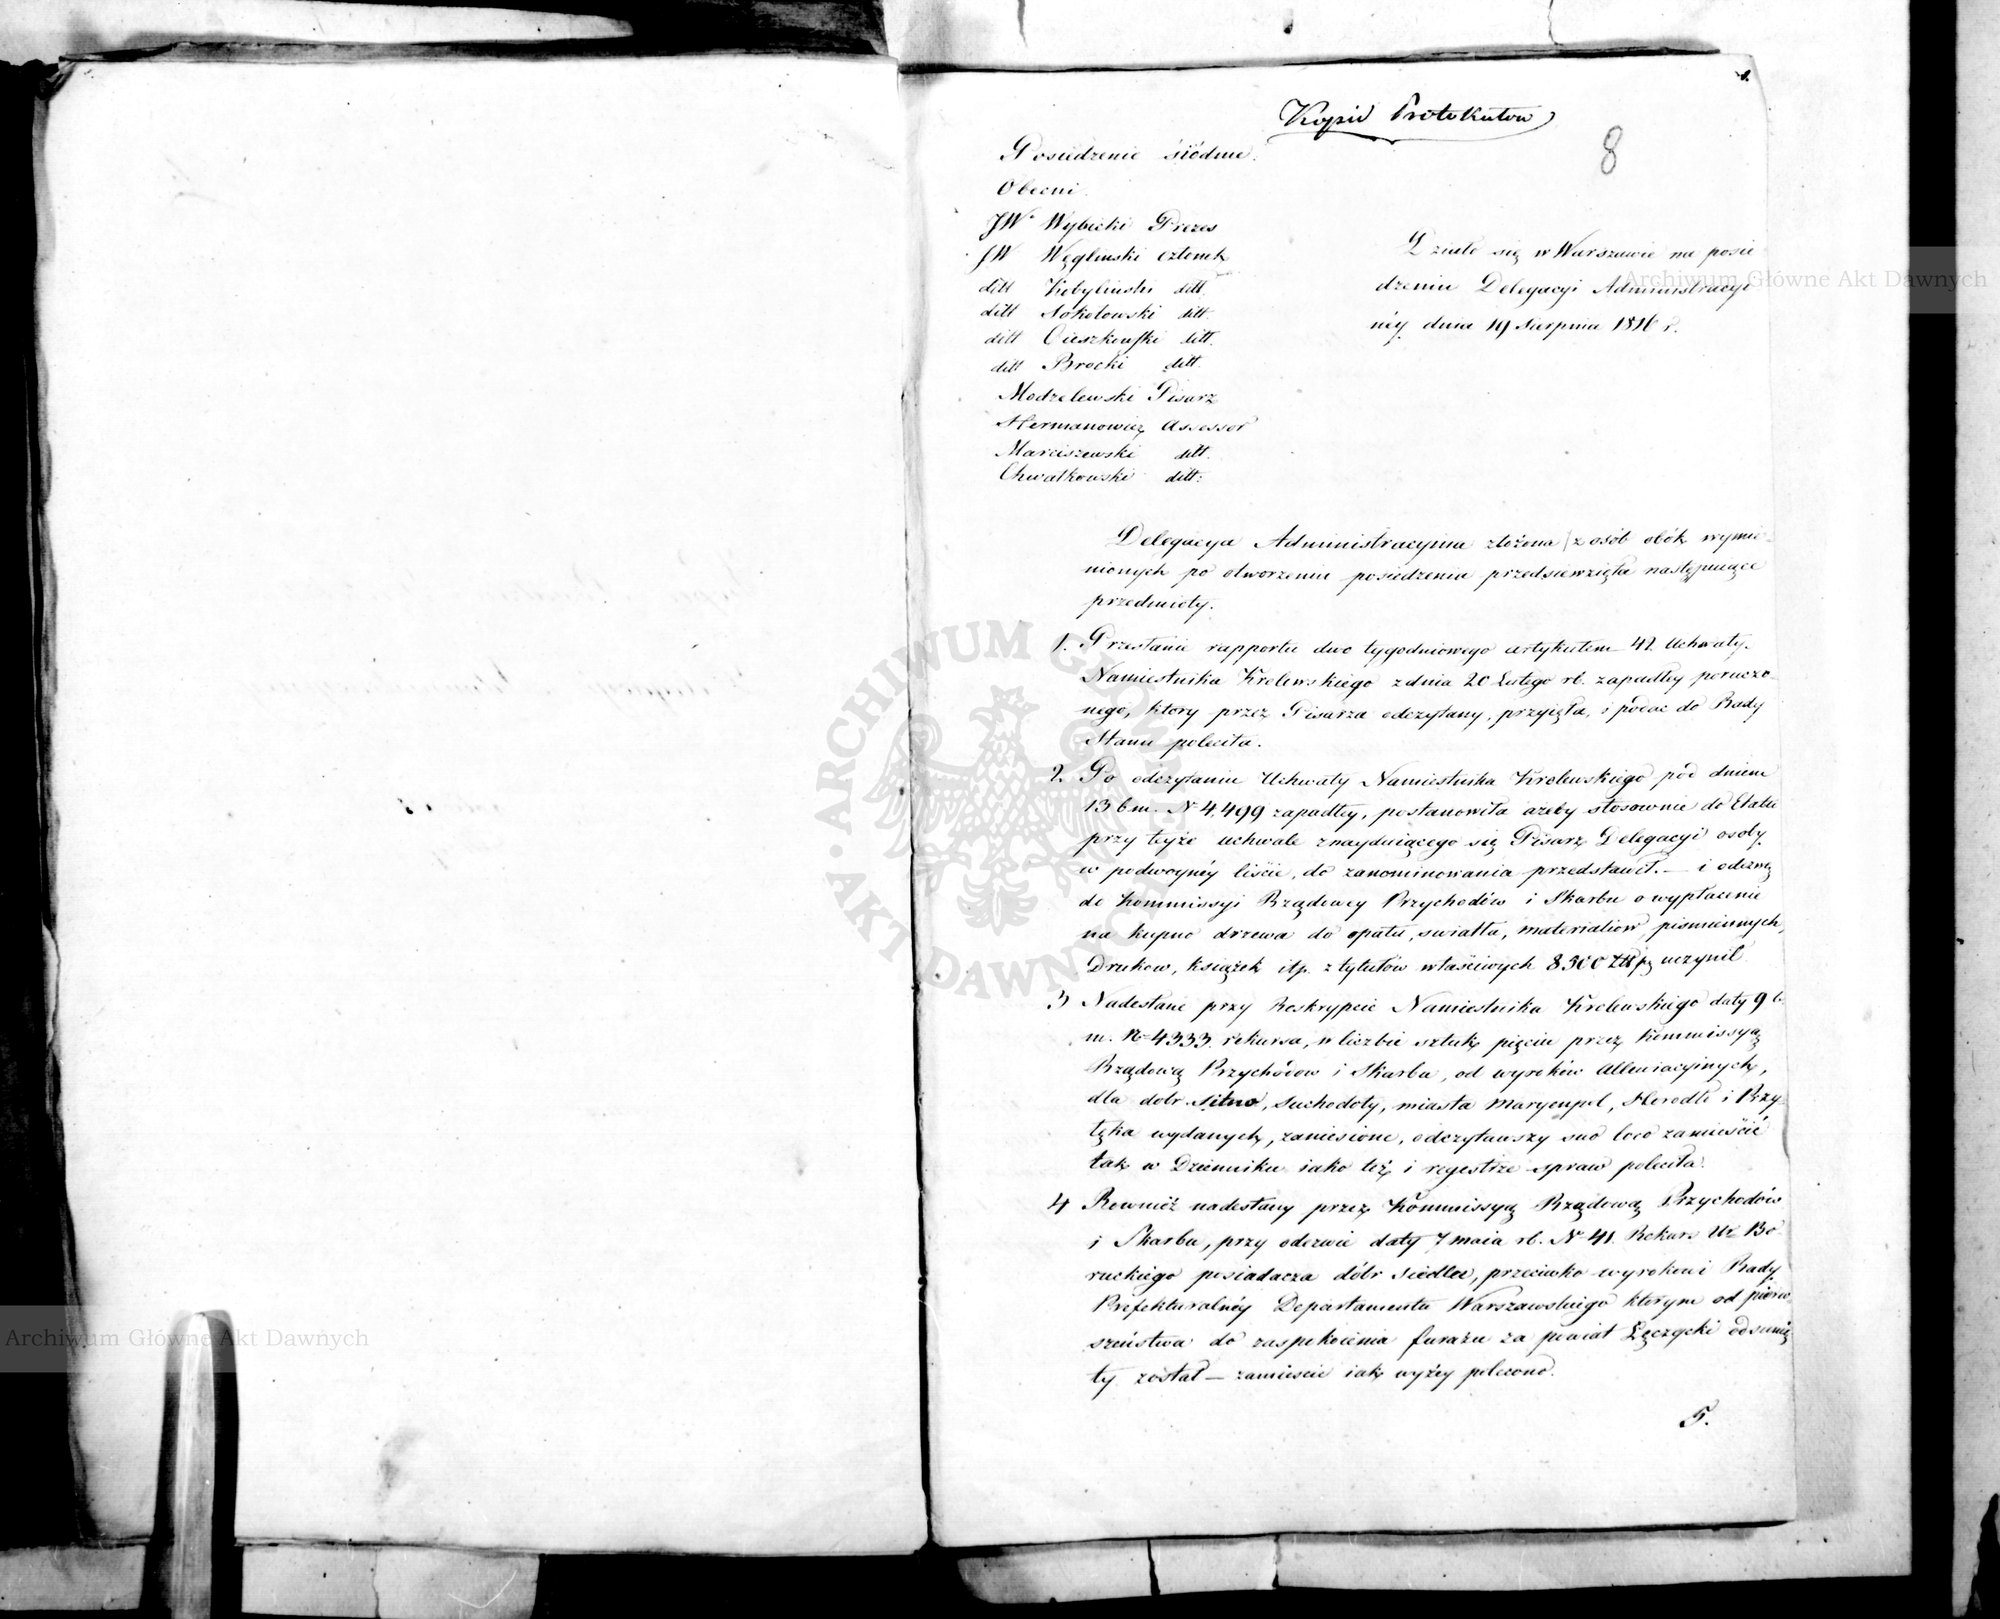 Kopiie Protokułow
8
Posiedzenie siódme.
Obecni.
JW. Wybicki Prezes
JW Węgliński członek
ditt Kobyliński ditt.
ditt Sokołowski ditt.
ditt Cieszkowski ditt.
ditt Brocki ditt.
Modzelewski Pisarz
Hermanowicz Assessor
Marciszewski ditt.
Chwałkowski ditt:
Działo się w Warszawie na posie
dzeniu Delegacyi Administracyi
néy dnia 19 Sierpnia 1816 r.
Delegacya Administracyina złożona z osób obók wymie-
nionych po otworzeniu posiedzenia przedsięwzięła następuiące
przedmioty.
1. Przesłanie rapportu dwo tygodniowego artykułem 42 Uchwały
Namiestnika Krolewskiego z dnia 20 Lutego rb. zapadłey poruczo-
nego, ktory przez Pisarza odczytany, przyięła, i podać do Rady
Stanu poleciła.
2. Po odczytaniu Uchwały Namiestnika Krolewskiego pod dniem
13 b.m. N 4,499 zapadłey, postanowiła ażeby stosownie do Etatu
przy teyże uchwale znayduiącego się Pisarz Delegacyi osoby
w podwoynéy liście, do zanominowania przedstawił. — i odezwę
do Kommissyi Rządowey Przychodów i Skarbu o wypłacenie
na kupno drzewa do opału, swiatła, materiałow pismiennych,
Drukow, książek itp. z tytułów właściwych 8300 Złłp uczynił.
3 Nadesłane przy Reskrypcie Namiestnika Krolewskiego daty 9 b.
m. No 4333. rekursa, w liczbie sztuk pięciu przez Kommissyą
Rządową Przychódow i Skarbu, od wyroków Allewiacyinych,
dla dobr Sitno, Suchodoły, miasta Maryenpol, Horodło i Przy-
tyka wydanych, zaniesione, odczytawszy suo loco zamieścić
tak w Dzienniku iako też i regestrze spraw poleciła.
4 Rownież nadesłany przez Kommissyą Rządową Przychodów
i Skarbu, przy odezwie daty 7 maia rb. No 41. Rekurs Ur Bo-
ruckiego posiadacza dóbr Siedlec, przeciwko wyrokowi Rady
Prefekturalnéy Departamentu Warszawskiego którym od pierw-
szeństwa do zaspokoienia furażu za powiat Łęczycki odsunię
ty został — zamieścić iak wyżey polecono.
5.
ARCHIWUM GŁÓWNE AKT DAWNYCH
Archiwum Główne Akt Dawnych
Archiwum Główne Akt Dawnych